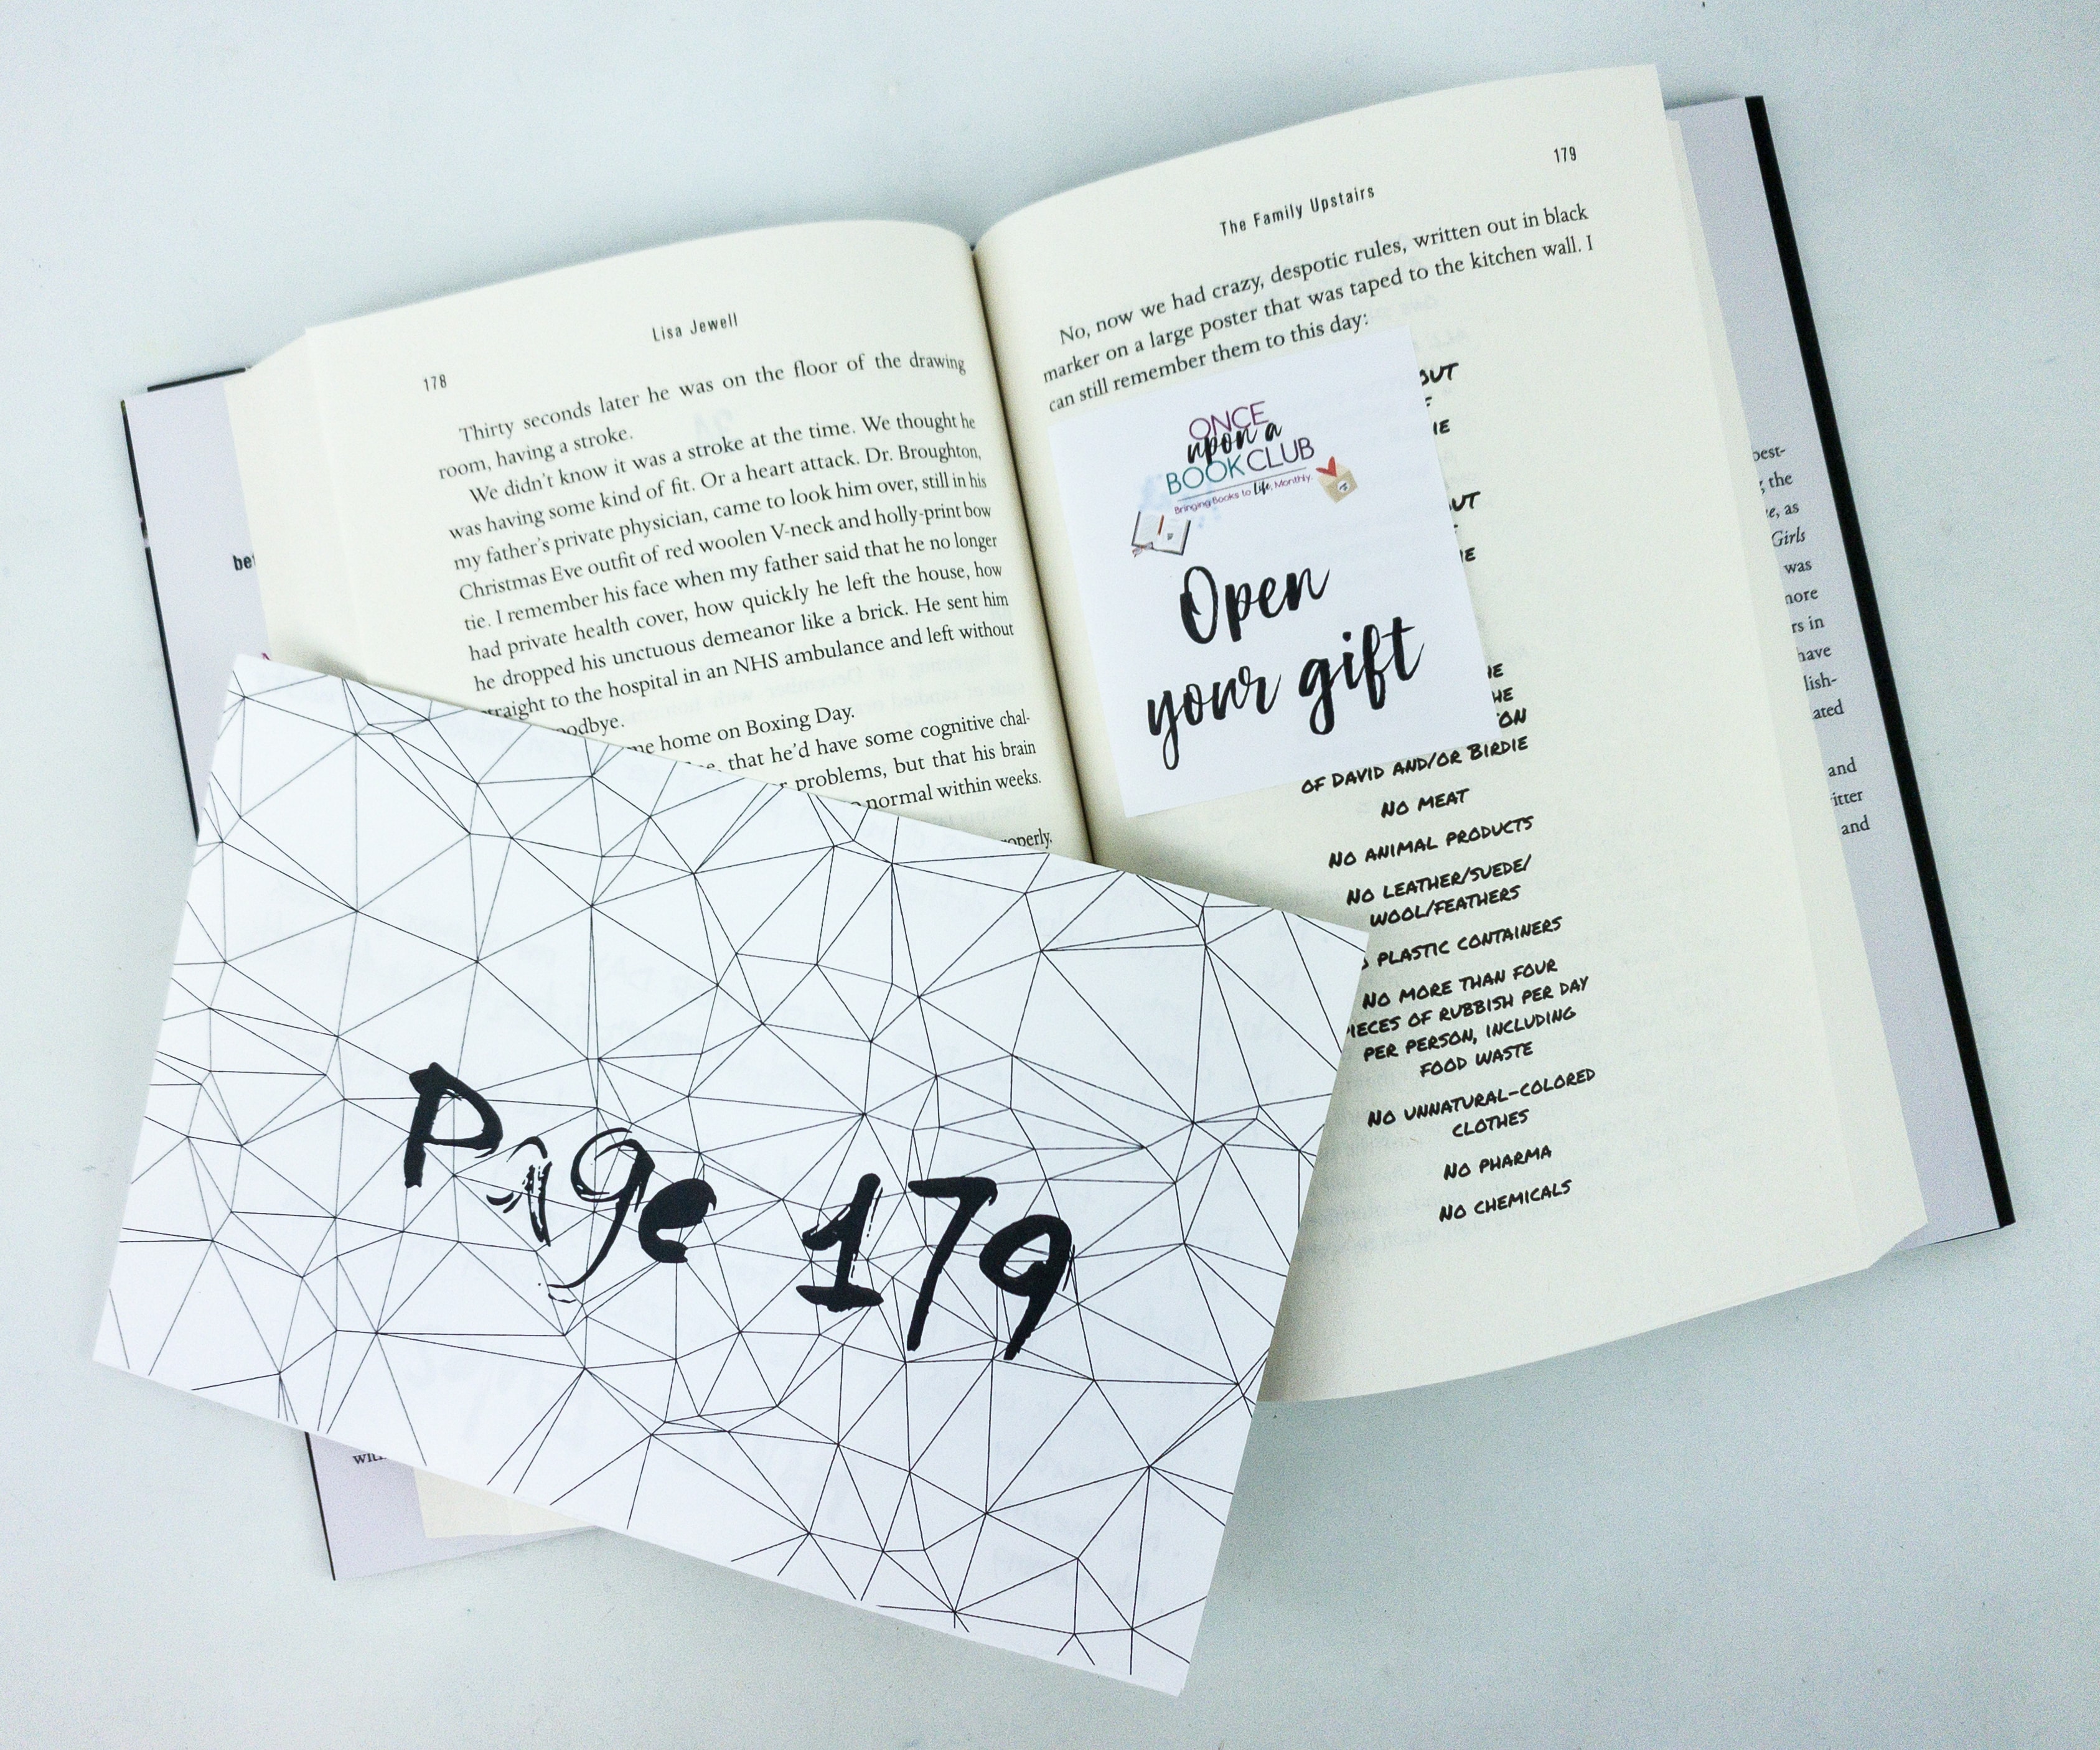 178
Lisa Jewell
Thirty seconds later he was on the floor of the drawing
room, having a stroke.
We didn't know it was a stroke at the time. We thought he
was having some kind of fit. Or a heart attack. Dr. Broughton,
my father's private physician, came to look him over, still in his
Christmas Eve outfit of red woolen V-neck and holly-print bow
tie. I remember his face when my father said that he no longer
had private health cover, how quickly he left the house, how
he dropped his unctuous demeanor like a brick. He sent him
straight to the hospital in an NHS ambulance and left without
home on Boxing Day.
that he'd have some cognitive chal-
problems, but that his brain
normal within weeks.
179
The Family Upstairs
No, now we had crazy, despotic rules, written out in black
marker on a large poster that was taped to the kitchen wall. I
can still remember them to this day:
ONCE
upon a
BOOK CLUB
Bringing Books to Life, Monthly.
Open
your gift
OF DAVID AND/OR BIRDIE
NO MEAT
NO ANIMAL PRODUCTS
NO LEATHER/SUEDE/
WOOL/FEATHERS
PLASTIC CONTAINERS
NO MORE THAN FOUR
PIECES OF RUBBISH PER DAY
PER PERSON, INCLUDING
FOOD WASTE
NO UNNATURAL-COLORED
CLOTHES
NO PHARMA
NO CHEMICALS
Page 179
best-
the
as
Girls
was
more
rs in
have
lish-
ated
and
itter
and